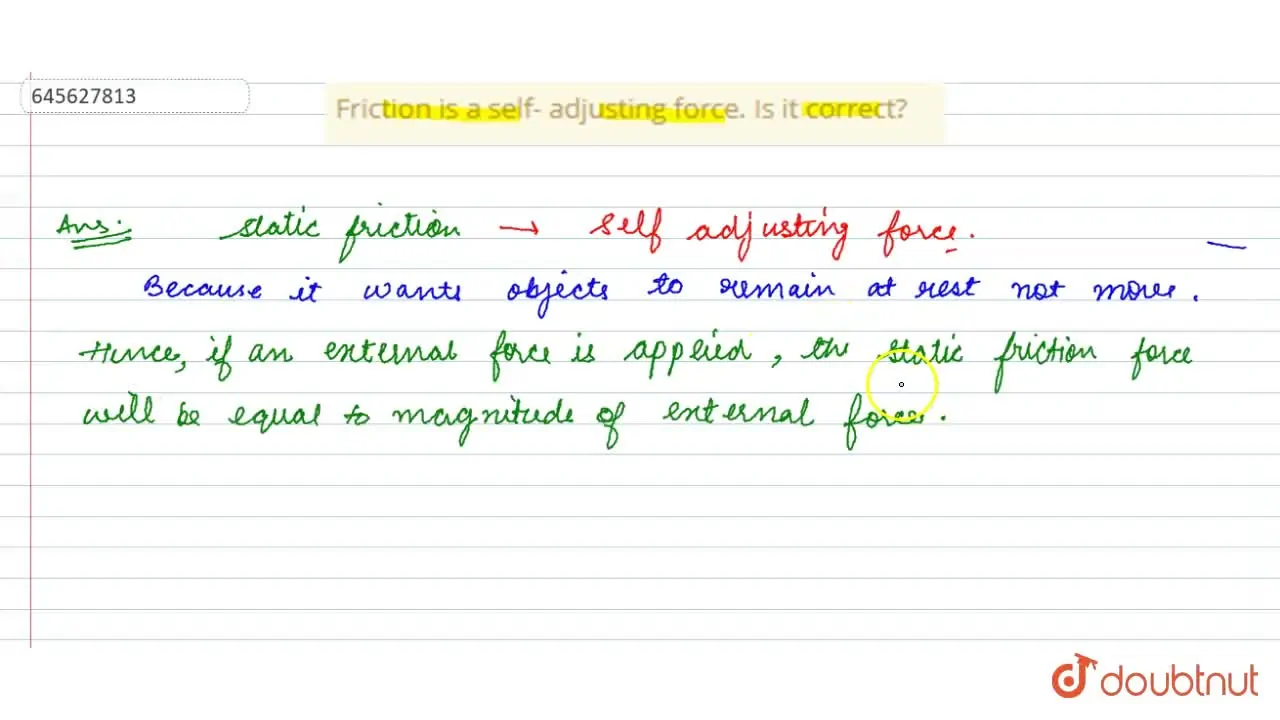 645627813
Friction is a self- adjusting force. Is it correct?
Ans. static friction → self adjusting force.
Because it wants objects to remain at rest not move.
Hence, if an external force is applied, the static friction force
will be equal to magnitude of external force.
doubtnut